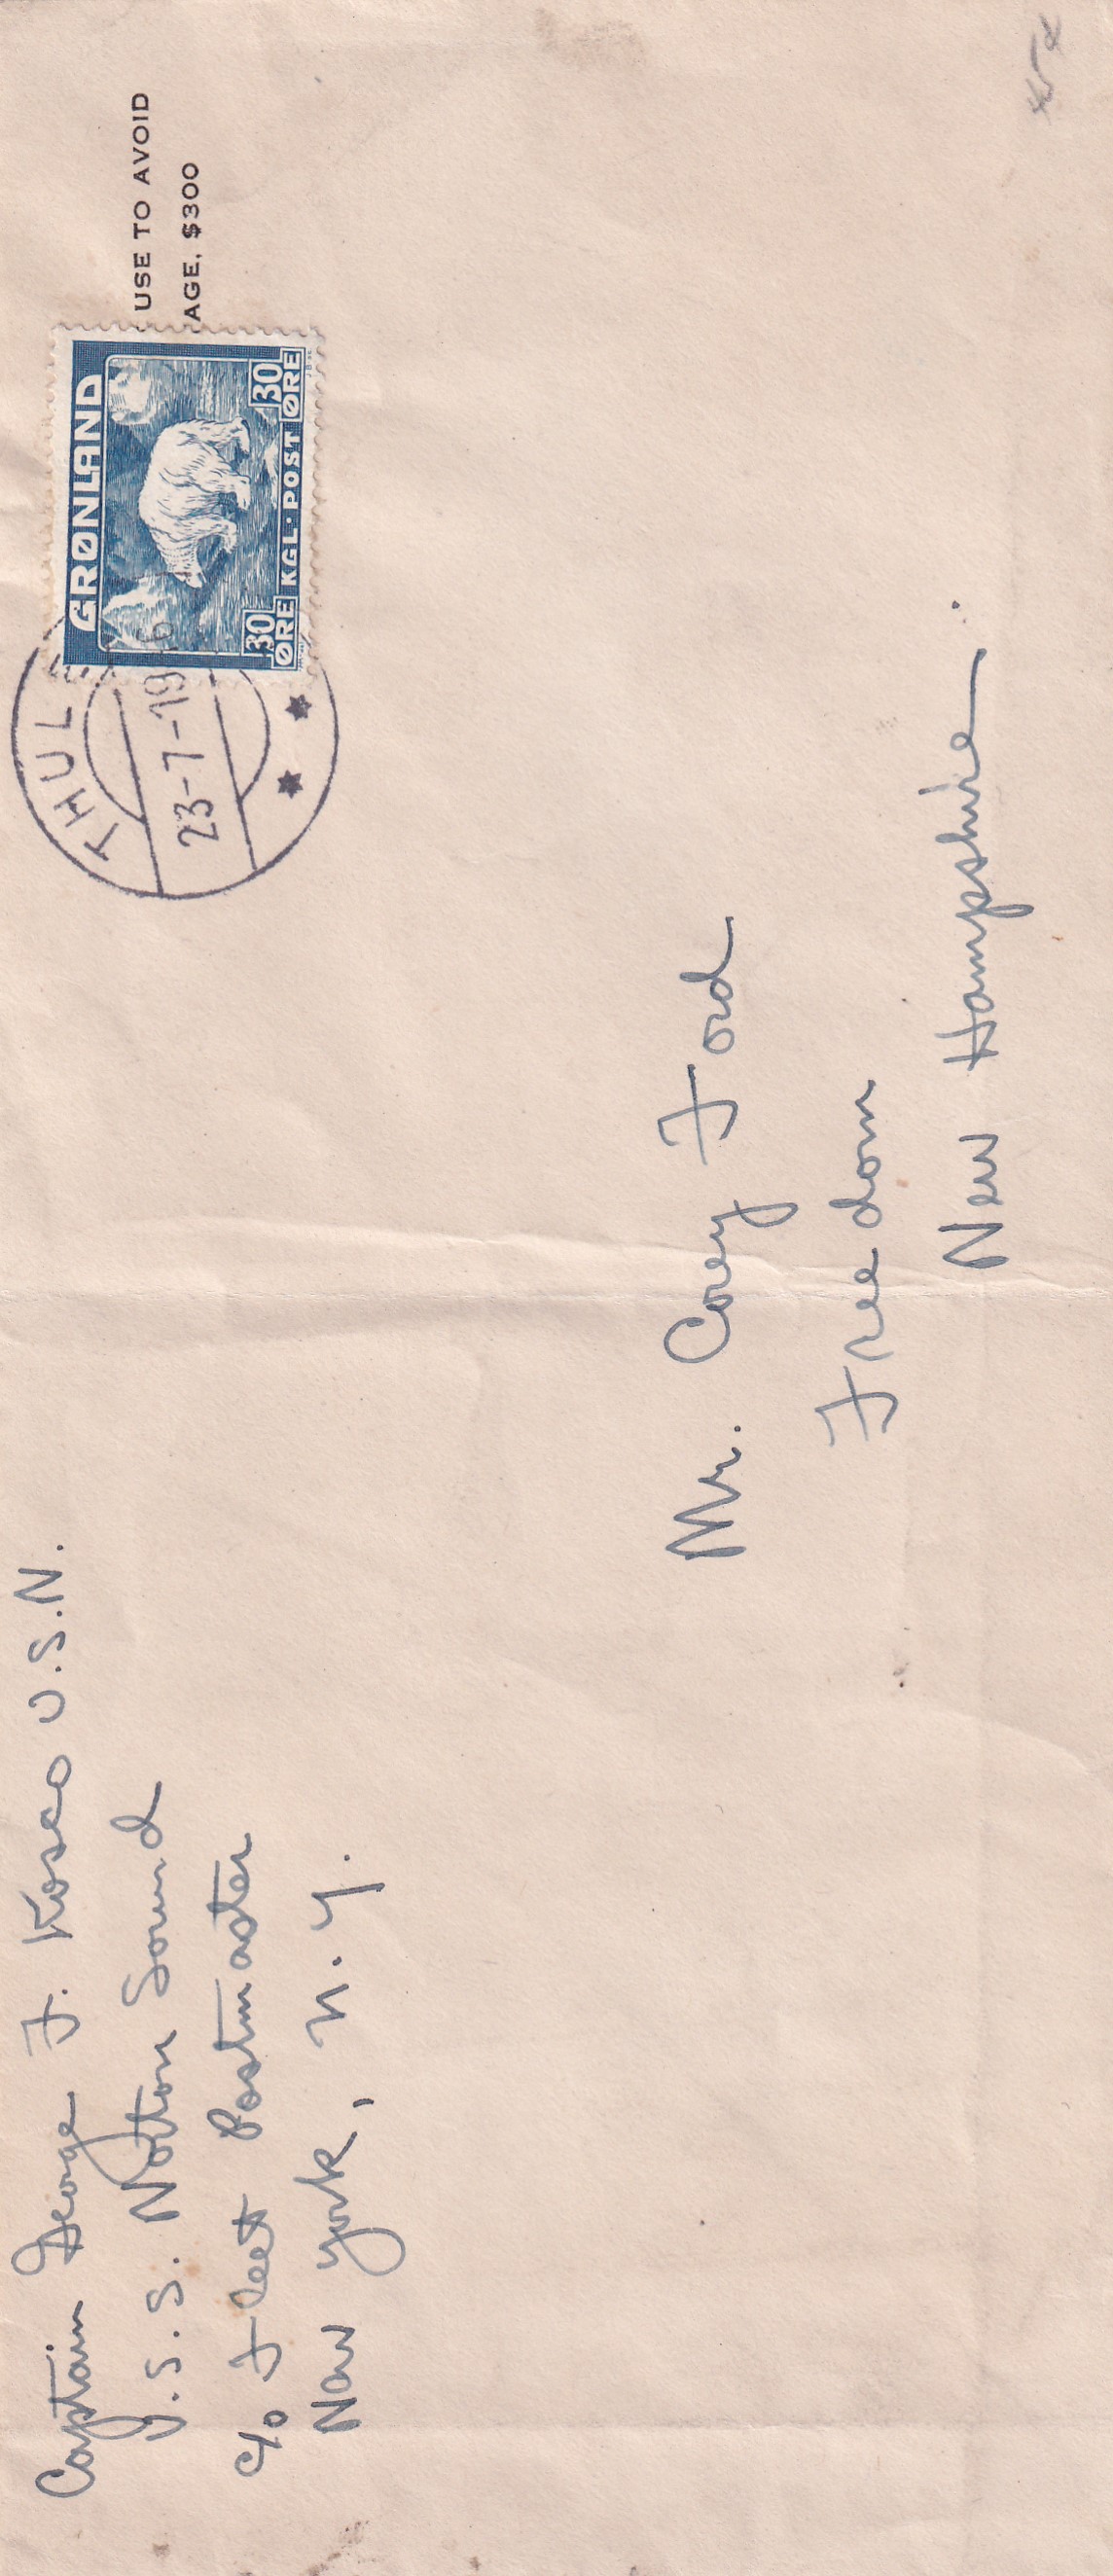 Captain George F. Kosco U.S.N.
U.S.S. Norton Sound
c/o Fleet Postmaster
New York, N.Y.
USE TO AVOID
AGE, $300
GRØNLAND
30 ØRE KGL·POST 30 ØRE
THULE
23-7-19 6
Mr. Corey Ford
Freedom
New Hampshire.